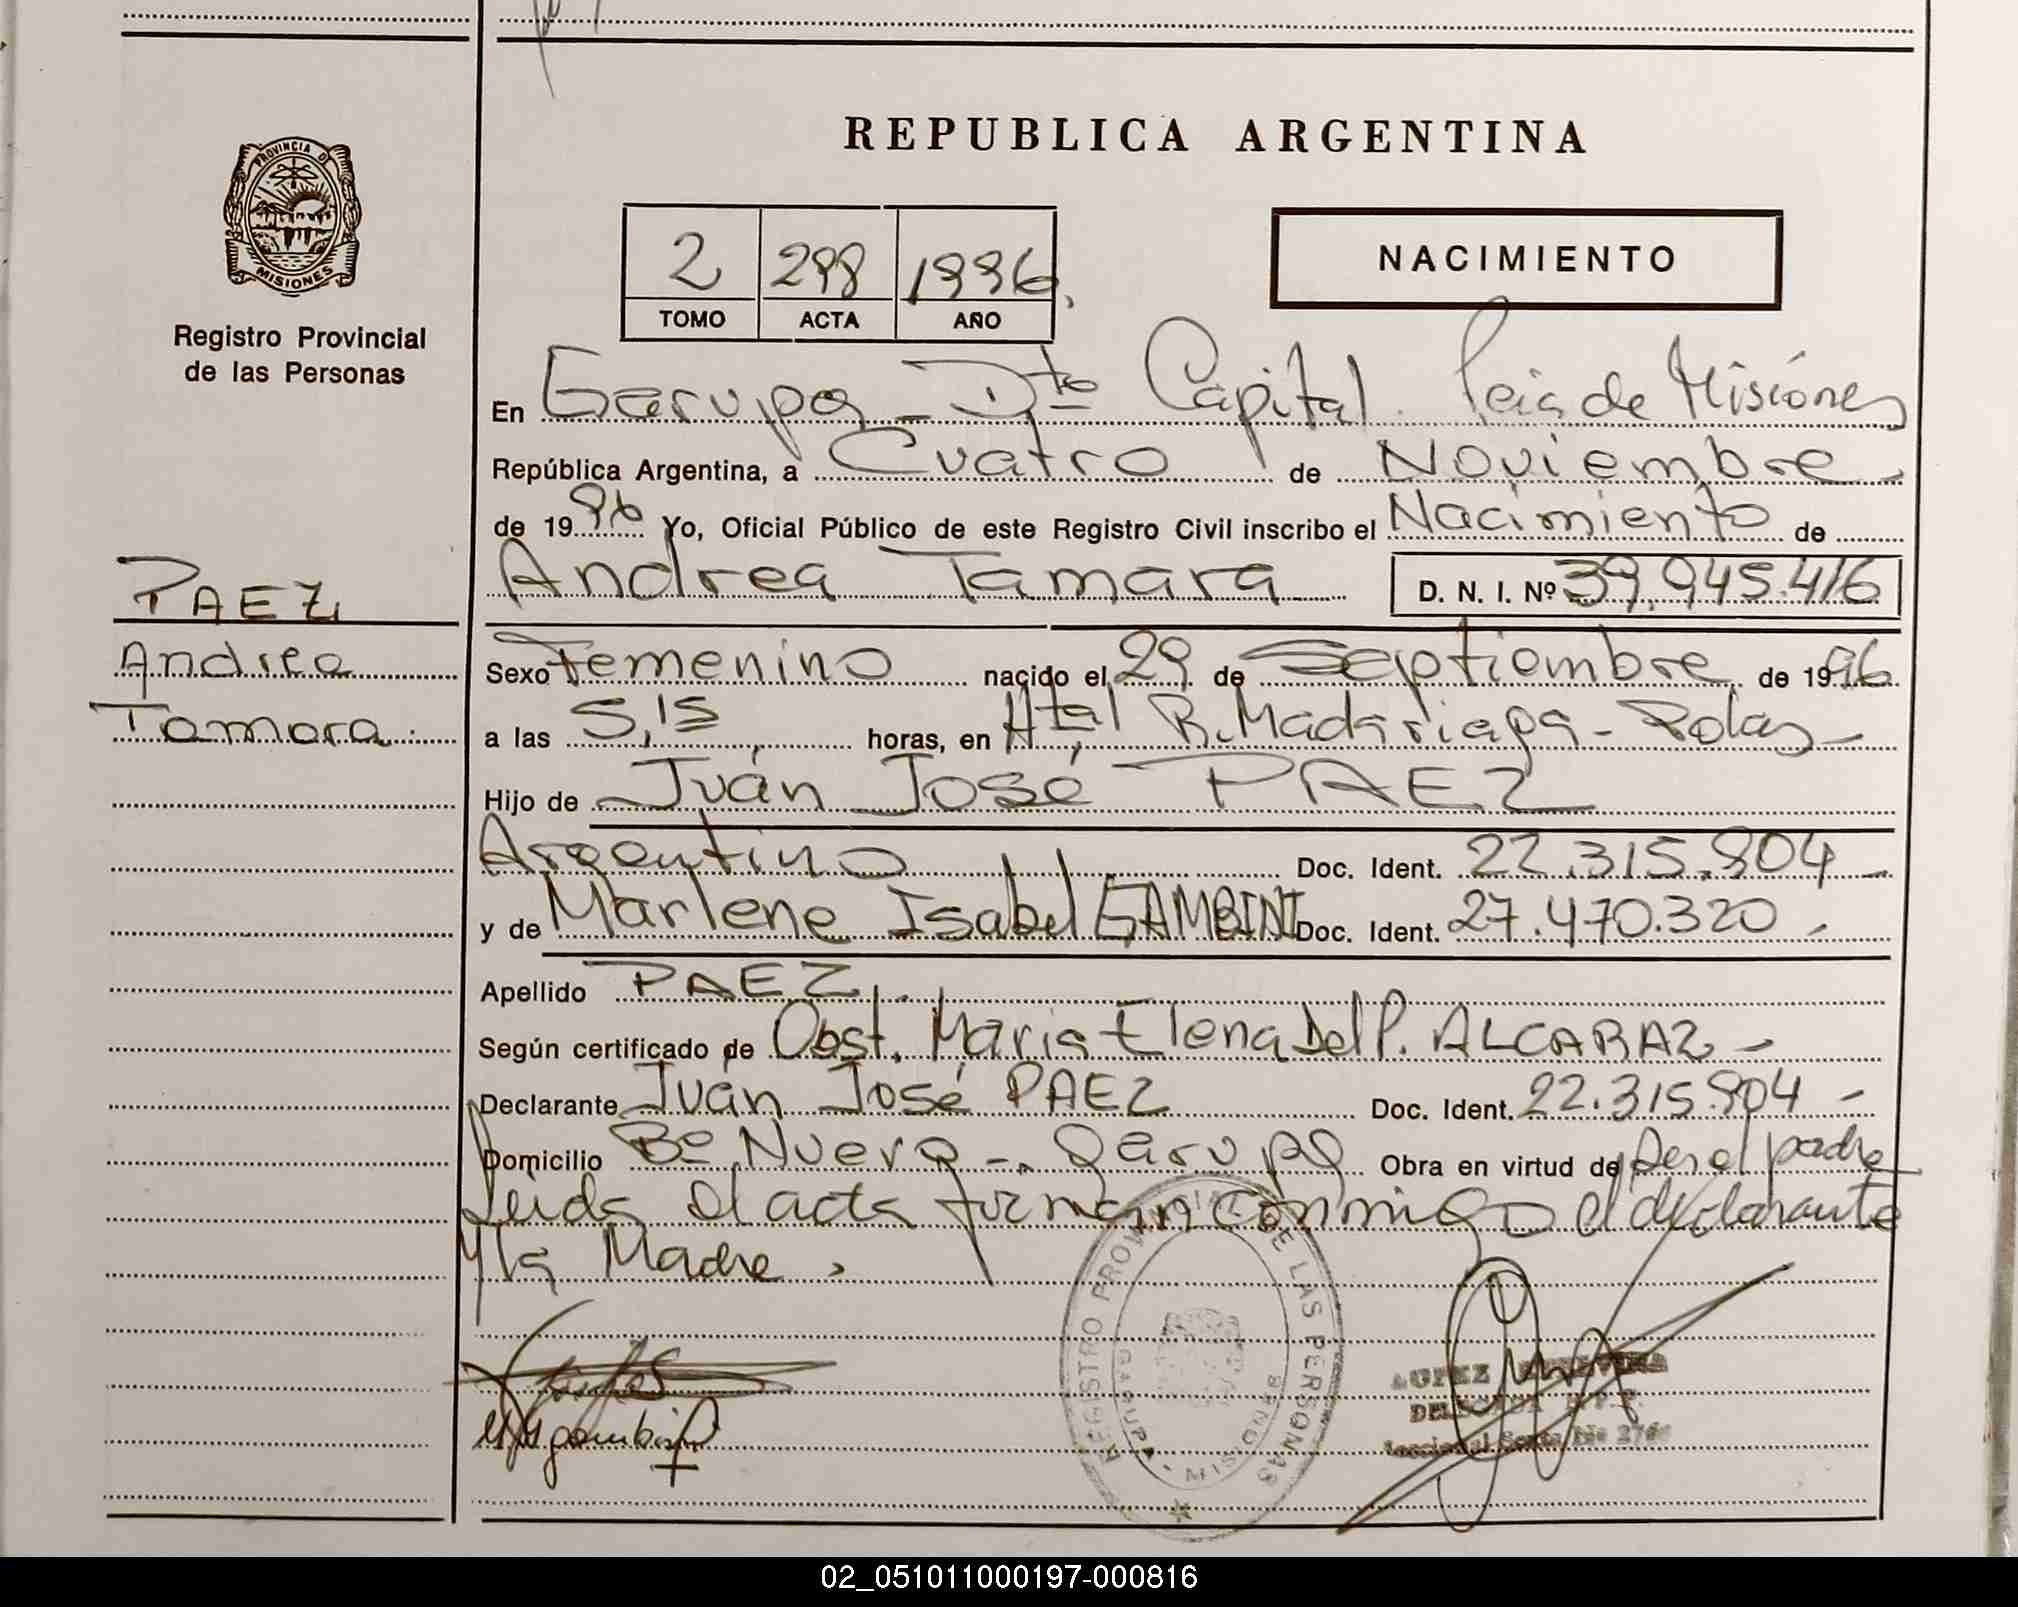 PROVINCIA DE
MISIONES
Registro Provincial
de las Personas
REPUBLICA ARGENTINA
2 298 1996
TOMO ACTA AÑO
NACIMIENTO
En Garupa - Dto Capital. Pcia de Misiones
República Argentina, a Cuatro de Noviembre
de 1996 Yo, Oficial Público de este Registro Civil inscribo el Nacimiento de
PAEZ
Andrea Tamara D. N. I. Nº 39.945.416
Andrea
Sexo Femenino nacido el 29 de Septiembre de 1996
Tamara
a las 5,15 horas, en Htal R. Madariaga - Pdas -
Hijo de Juán José PAEZ
Argentino Doc. Ident. 22.315.804 -
y de Marlene Isabel GAMBINI Doc. Ident. 27.470.320 -
Apellido PAEZ
Según certificado de Obst. Maria Elena Del P. ALCARAZ -
Declarante Juán José PAEZ Doc. Ident. 22.315.804 -
Domicilio Bº Nuevo - Garupa Obra en virtud de ser el padre
Leida el acta firman conmigo el declarante
y la Madre
REGISTRO PROVINCIAL DE LAS PERSONAS
GARUPA - MISIONES
LOPEZ
02_051011000197-000816